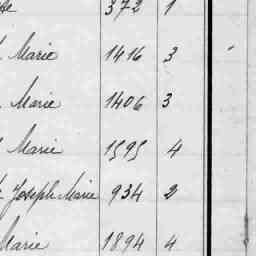 372 1
Marie 1416 3
Marie 1406 3
Marie 1595 4
Joseph Marie 934 2
Marie 1894 4